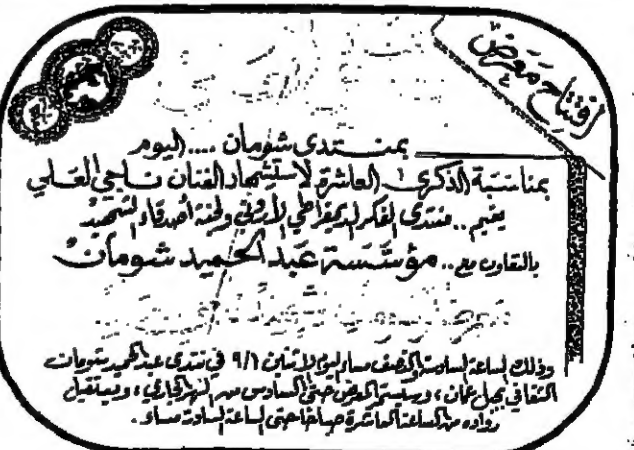 افتتاح معرض
بمنتدى شومان .... اليوم
بمناسبة الذكرى العاشرة لاستشهاد الفنان ناجي العلي
يقيم .. منتدى الفكر الديمقراطي الأردني ولجنة أصدقاء الشهيد
بالتعاون مع .. مؤسسة عبد الحميد شومان
وذلك الساعة السادسة والنصف مساء اليوم الاثنين ٩/١ في منتدى عبد الحميد شومان
الثقافي بجبل عمان ، ويستمر العرض حتى السادس من الشهر الجاري ، ويستقبل
رواده من الساعة العاشرة صباحا حتى الساعة السادسة مساء .